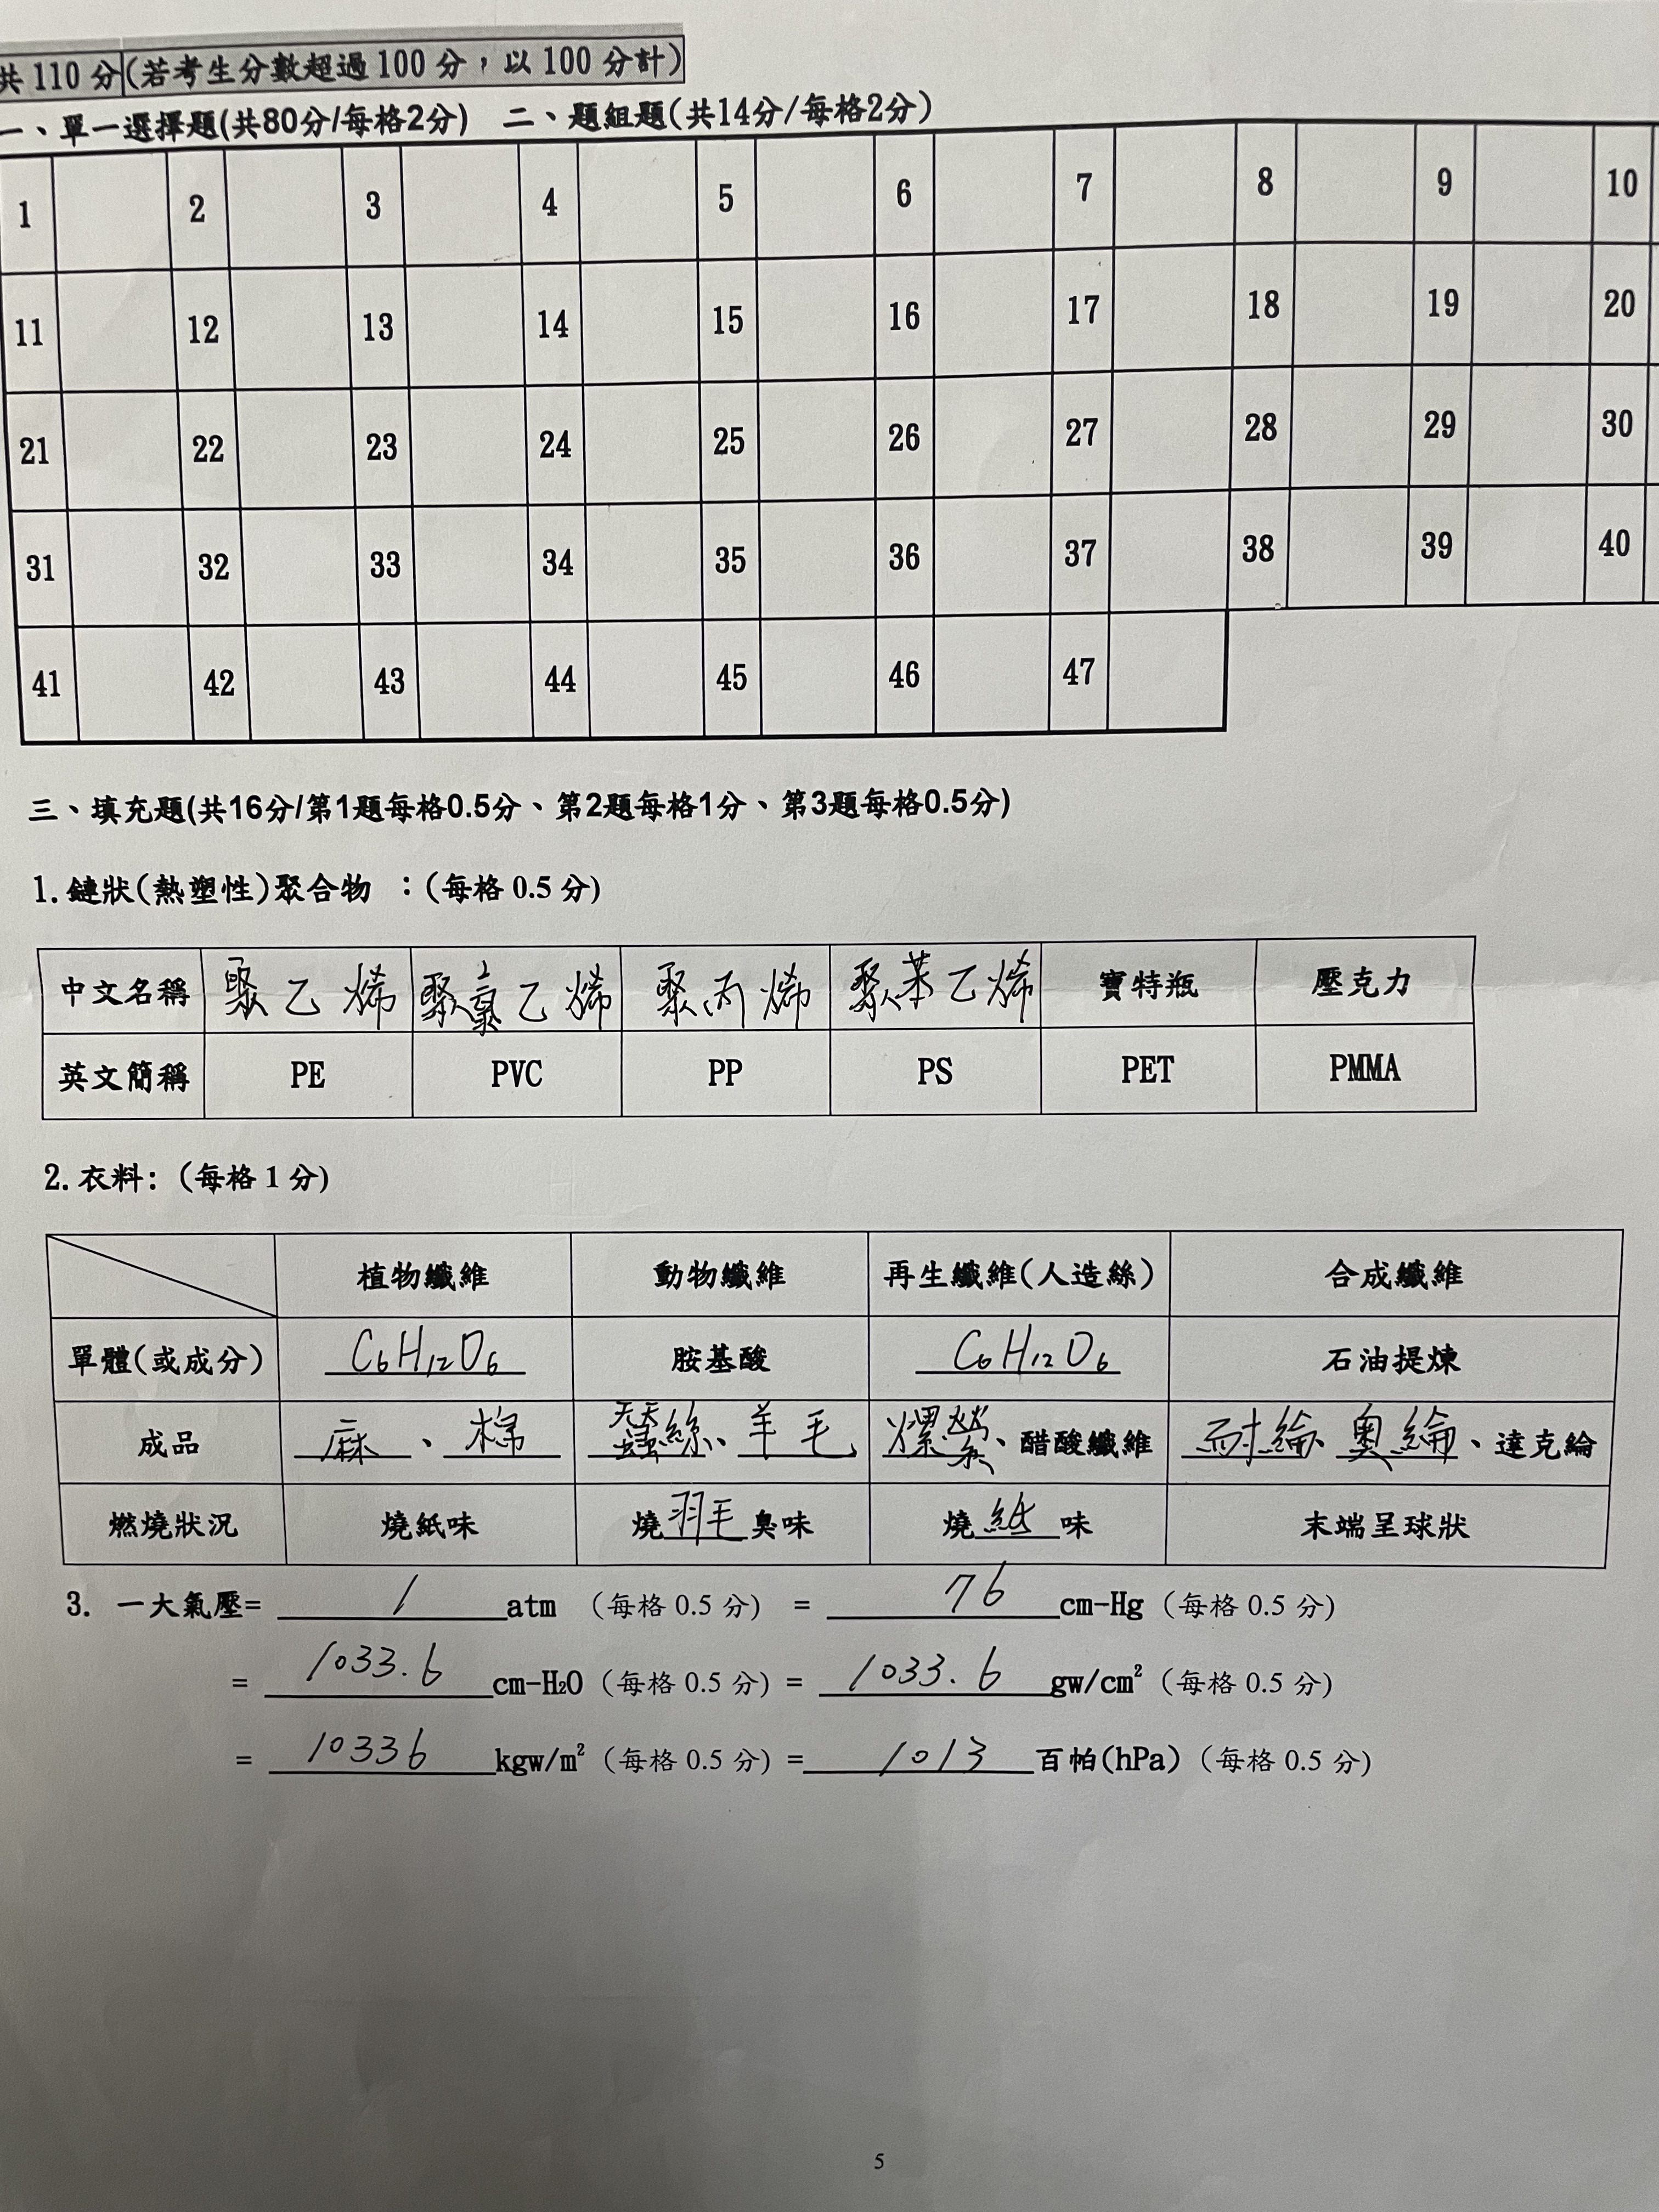 共 110 分(若考生分數超過 100 分，以 100 分計)
一、單一選擇題(共80分/每格2分) 二、題組題(共14分/每格2分)
1 2 3 4 5 6 7 8 9 10
11 12 13 14 15 16 17 18 19 20
21 22 23 24 25 26 27 28 29 30
31 32 33 34 35 36 37 38 39 40
41 42 43 44 45 46 47
三、填充題(共16分/第1題每格0.5分、第2題每格1分、第3題每格0.5分)
1.鏈狀(熱塑性)聚合物 ：(每格 0.5 分)
中文名稱 聚乙烯 聚氯乙烯 聚丙烯 聚苯乙烯 寶特瓶 壓克力
英文簡稱 PE PVC PP PS PET PMMA
2.衣料：(每格 1 分)
植物纖維 動物纖維 再生纖維(人造絲) 合成纖維
單體(或成分) C₆H₁₂O₆ 胺基酸 C₆H₁₂O₆ 石油提煉
成品 麻、棉 蠶絲、羊毛 嫘縈、醋酸纖維 耐綸、奧綸、達克綸
燃燒狀況 燒紙味 燒羽毛臭味 燒紙味 末端呈球狀
3. 一大氣壓= 1 atm (每格 0.5 分) = 76 cm-Hg (每格 0.5 分)
= 1033.6 cm-H₂O (每格 0.5 分) = 1033.6 gw/cm² (每格 0.5 分)
= 10336 kgw/m² (每格 0.5 分) = 1013 百帕(hPa) (每格 0.5 分)
5